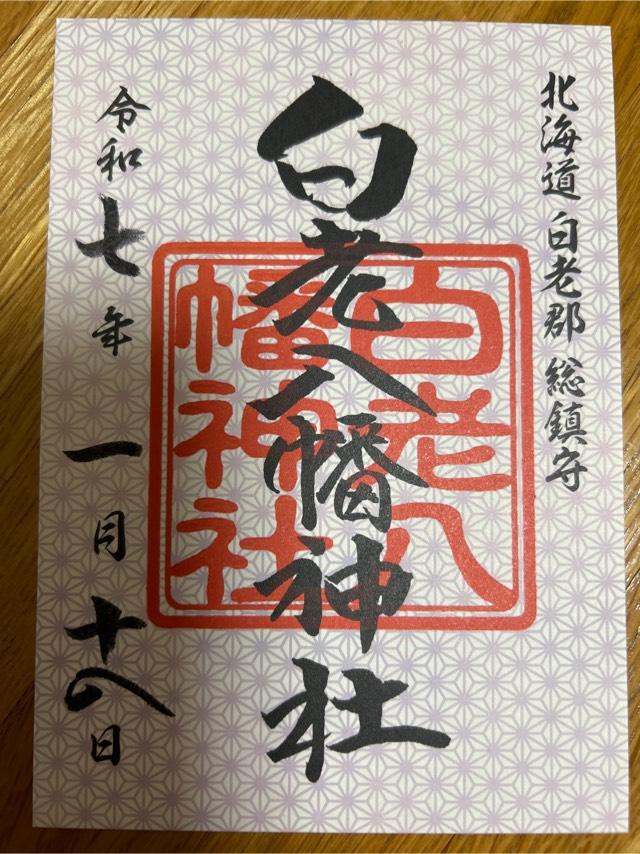 北海道 白老郡 総鎮守
白老八幡神社
白老八
幡神社
令和七年 一月十八日